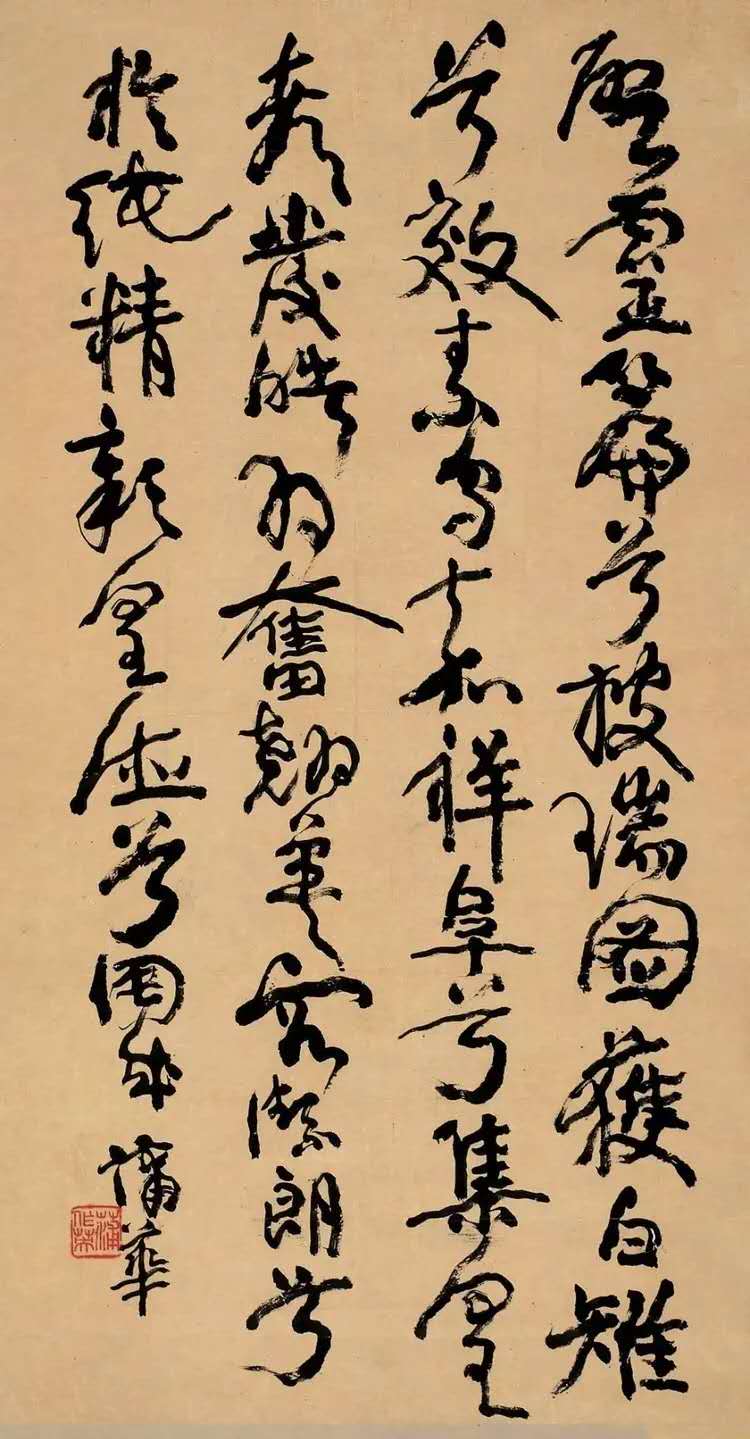 啟靈篇兮披瑞圖獲白雉
兮效素烏嘉祥阜兮集皇
都發皓羽奮翹英容潔朗兮
於純精彰皇德兮周成
蒲華
蒲作英